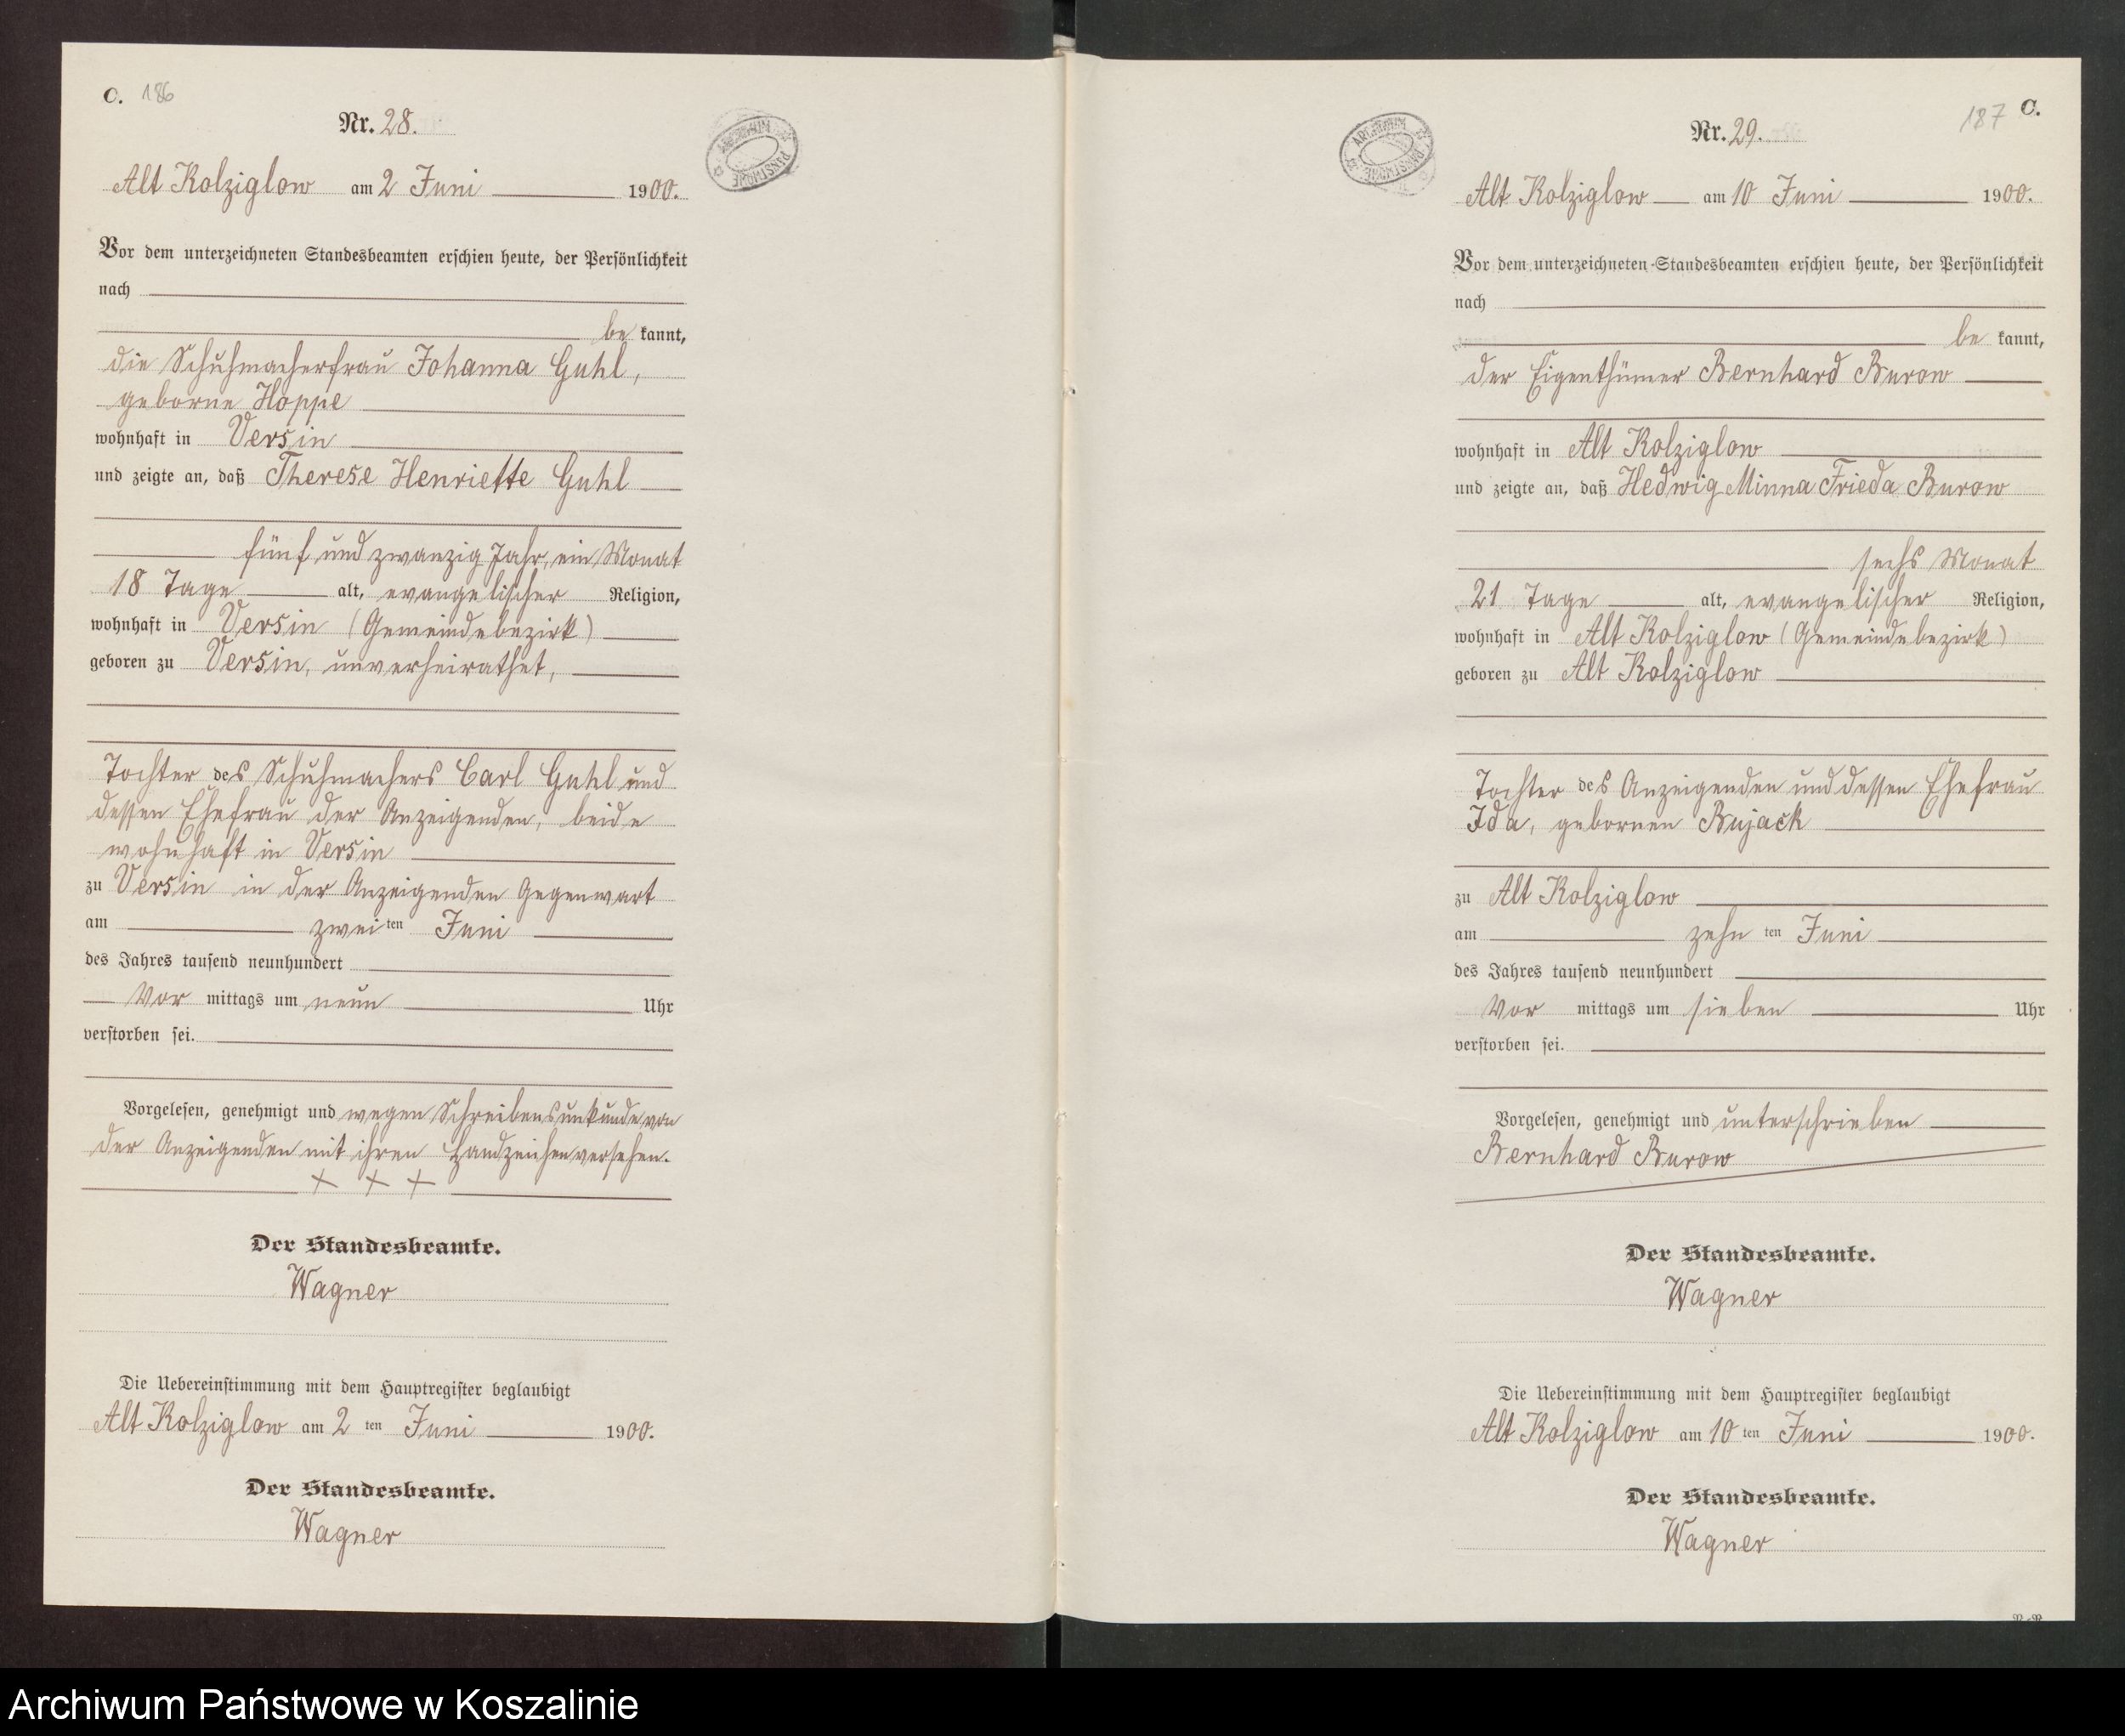 C. 186
Nr. 28.
Alt Kolziglow am 2 Juni 1900.
Vor dem unterzeichneten Standesbeamten erschien heute, der Persönlichkeit
nach
be kannt,
die Schuhmacherfrau Johanna Guhl,
geborne Hoppe
wohnhaft in Versin
und zeigte an, daß Therese Henriette Guhl
fünf und zwanzig Jahr, ein Monat
18 Tage alt, evangelischer Religion,
wohnhaft in Versin (Gemeindebezirk)
geboren zu Versin, unverheirathet,
Tochter des Schuhmachers Carl Guhl und
dessen Ehefrau der Anzeigenden, beide
wohnhaft in Versin
zu Versin in der Anzeigenden Gegenwart
am zwei ten Juni
des Jahres tausend neunhundert
Vor mittags um neun Uhr
verstorben sei.
Vorgelesen, genehmigt und wegen Schreibensunkunde von
der Anzeigenden mit ihren Handzeichen versehen.
+ + +
Der Standesbeamte.
Wagner
Die Uebereinstimmung mit dem Hauptregister beglaubigt
Alt Kolziglow am 2 ten Juni 1900.
Der Standesbeamte.
Wagner
ARCHIWUM PAŃSTWOWE
187 C.
Nr. 29.
Alt Kolziglow am 10 Juni 1900.
Vor dem unterzeichneten Standesbeamten erschien heute, der Persönlichkeit
nach
be kannt,
der Eigenthümer Bernhard Burow
wohnhaft in Alt Kolziglow
und zeigte an, daß Hedwig Minna Frieda Burow
sechs Monat
21 Tage alt, evangelischer Religion,
wohnhaft in Alt Kolziglow (Gemeindebezirk)
geboren zu Alt Kolziglow
Tochter des Anzeigenden und dessen Ehefrau
Ida, gebornen Bujack
zu Alt Kolziglow
am zehn ten Juni
des Jahres tausend neunhundert
Vor mittags um sieben Uhr
verstorben sei.
Vorgelesen, genehmigt und unterschrieben
Bernhard Burow
Der Standesbeamte.
Wagner
Die Uebereinstimmung mit dem Hauptregister beglaubigt
Alt Kolziglow am 10 ten Juni 1900.
Der Standesbeamte.
Wagner
ARCHIWUM PAŃSTWOWE
Archiwum Państwowe w Koszalinie